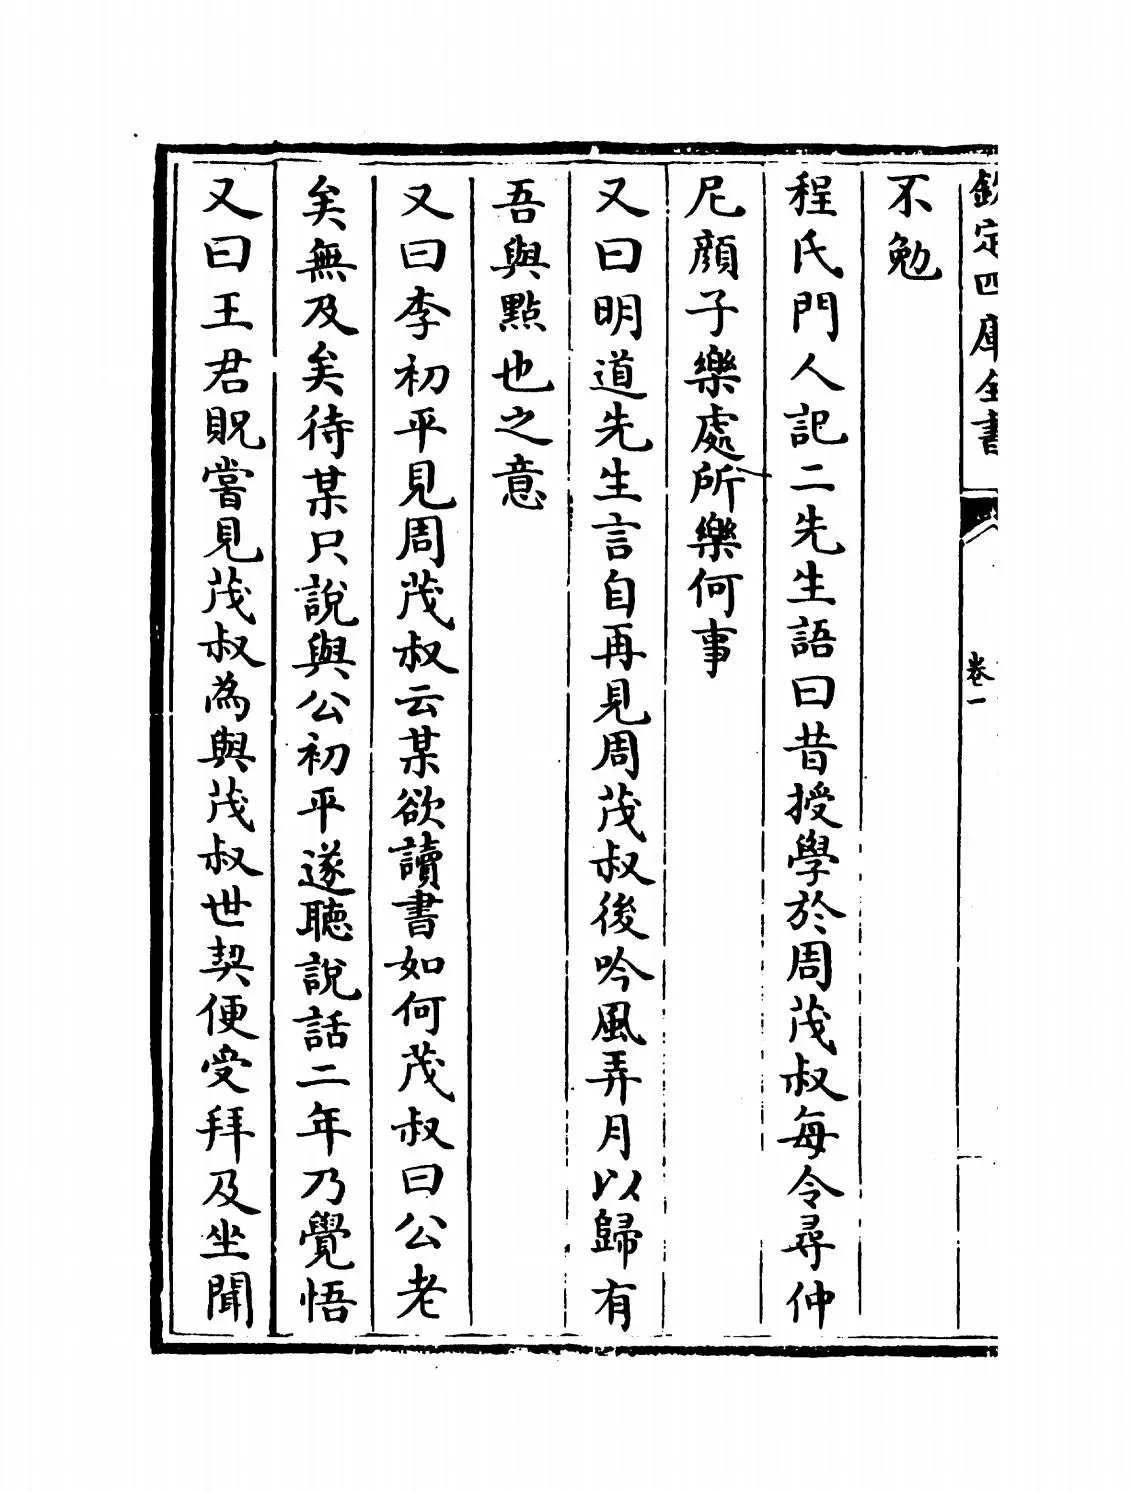 欽定四庫全書
卷一
不勉
程氏門人記二先生語曰昔授學於周茂叔每令尋仲
尼顔子樂處所樂何事
又曰明道先生言自再見周茂叔後吟風弄月以歸有
吾與點也之意
又曰李初平見周茂叔云某欲讀書如何茂叔曰公老
矣無及矣待某只說與公初平遂聽說話二年乃覺悟
又曰王君貺嘗見茂叔為與茂叔世契便受拜及坐聞